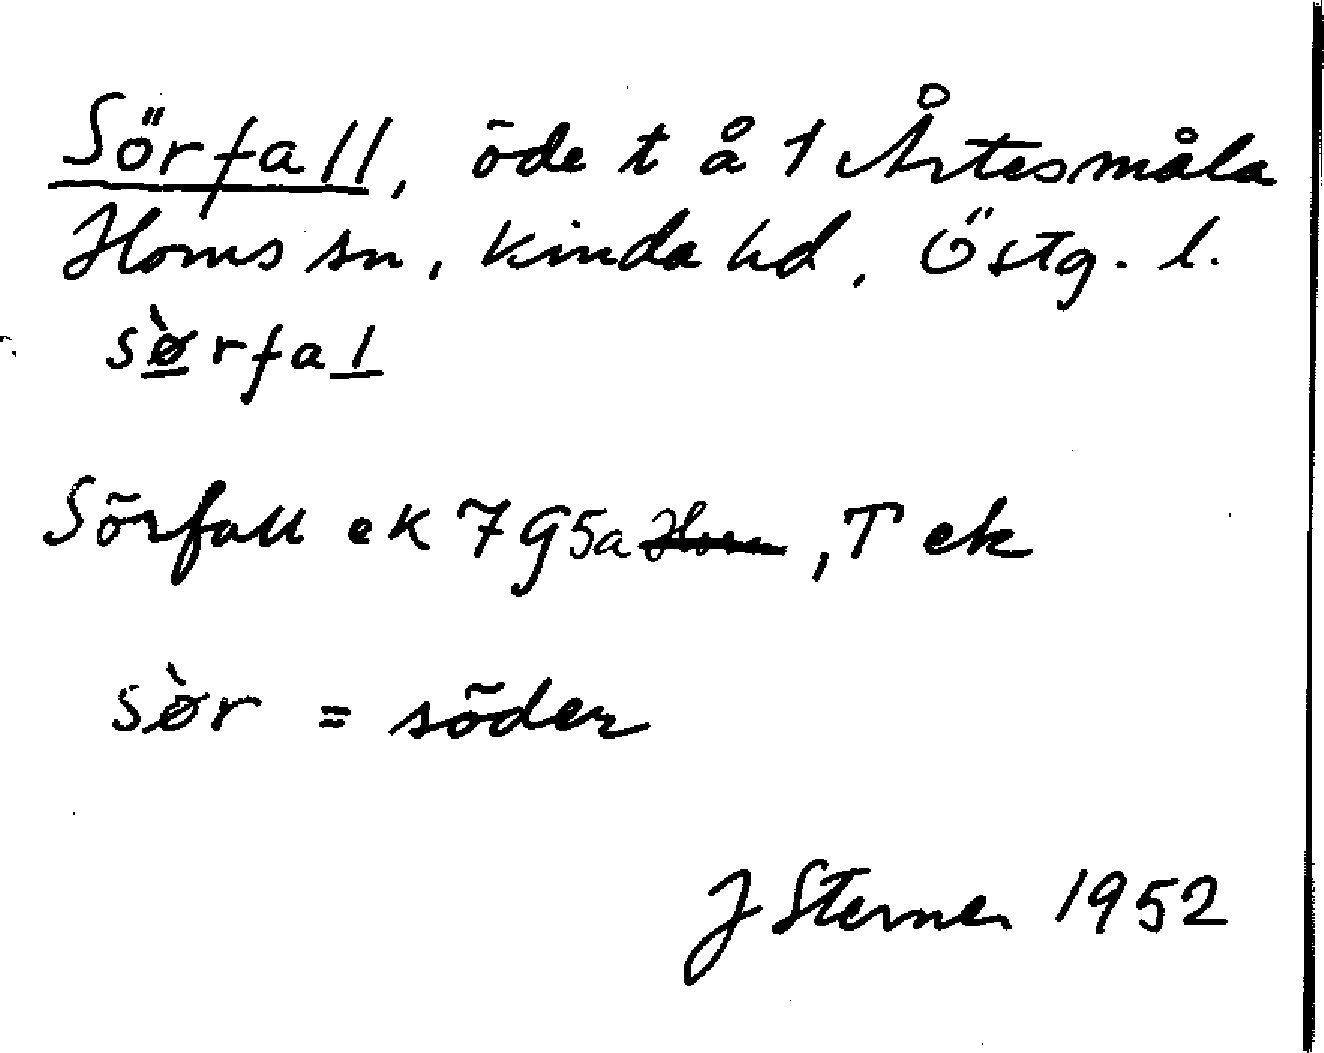 Sörfall, öde t å 1 Årtesmåla
Horns sn, Kinda hd, Östg. l.
sø̀rfal
Sörfall ek 7G5a Horn, T ek
sø̀r = söder
J Sterner 1952